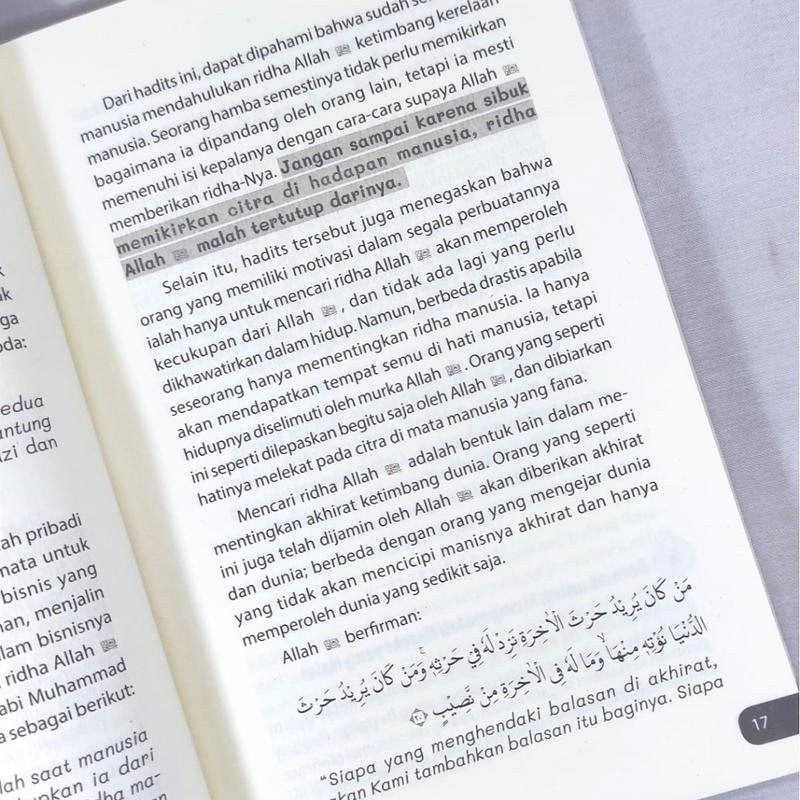 k
ık
ga
oda:
edua
antung
izi dan
ah pribadi
mata untuk
bisnis yang
an, menjalin
lam bisnisnya
ridha Allah ﷻ
abi Muhammad
a sebagai berikut:
lah saat manusia
upkan ia dari
dha ma-
Dari hadits ini, dapat dipahami bahwa sudah
manusia mendahulukan ridha Allah ﷻ ketimbang kerelaan
manusia. Seorang hamba semestinya tidak perlu memikirkan
bagaimana ia dipandang oleh orang lain, tetapi ia mesti
memenuhi isi kepalanya dengan cara-cara supaya Allah ﷻ
memberikan ridha-Nya. Jangan sampai karena sibuk
memikirkan citra di hadapan manusia, ridha
Allah ﷻ malah tertutup darinya.
Selain itu, hadits tersebut juga menegaskan bahwa
orang yang memiliki motivasi dalam segala perbuatannya
ialah hanya untuk mencari ridha Allah ﷻ akan memperoleh
kecukupan dari Allah ﷻ, dan tidak ada lagi yang perlu
dikhawatirkan dalam hidup. Namun, berbeda drastis apabila
seseorang hanya mementingkan ridha manusia. Ia hanya
akan mendapatkan tempat semu di hati manusia, tetapi
hidupnya diselimuti oleh murka Allah ﷻ. Orang yang seperti
ini seperti dilepaskan begitu saja oleh Allah ﷻ, dan dibiarkan
hatinya melekat pada citra di mata manusia yang fana.
Mencari ridha Allah ﷻ adalah bentuk lain dalam me-
mentingkan akhirat ketimbang dunia. Orang yang seperti
ini juga telah dijamin oleh Allah ﷻ akan diberikan akhirat
dan dunia; berbeda dengan orang yang mengejar dunia
yang tidak akan mencicipi manisnya akhirat dan hanya
memperoleh dunia yang sedikit saja.
Allah ﷻ berfirman:
مَنْ كَانَ يُرِيْدُ حَرْثَ الْاٰخِرَةِ نَزِدْ لَهٗ فِيْ حَرْثِهٖۚ وَمَنْ كَانَ يُرِيْدُ حَرْثَ
الدُّنْيَا نُؤْتِهٖ مِنْهَاۙ وَمَا لَهٗ فِى الْاٰخِرَةِ مِنْ نَّصِيْبٍ ۝٢٠
“Siapa yang menghendaki balasan di akhirat,
akan Kami tambahkan balasan itu baginya. Siapa
17